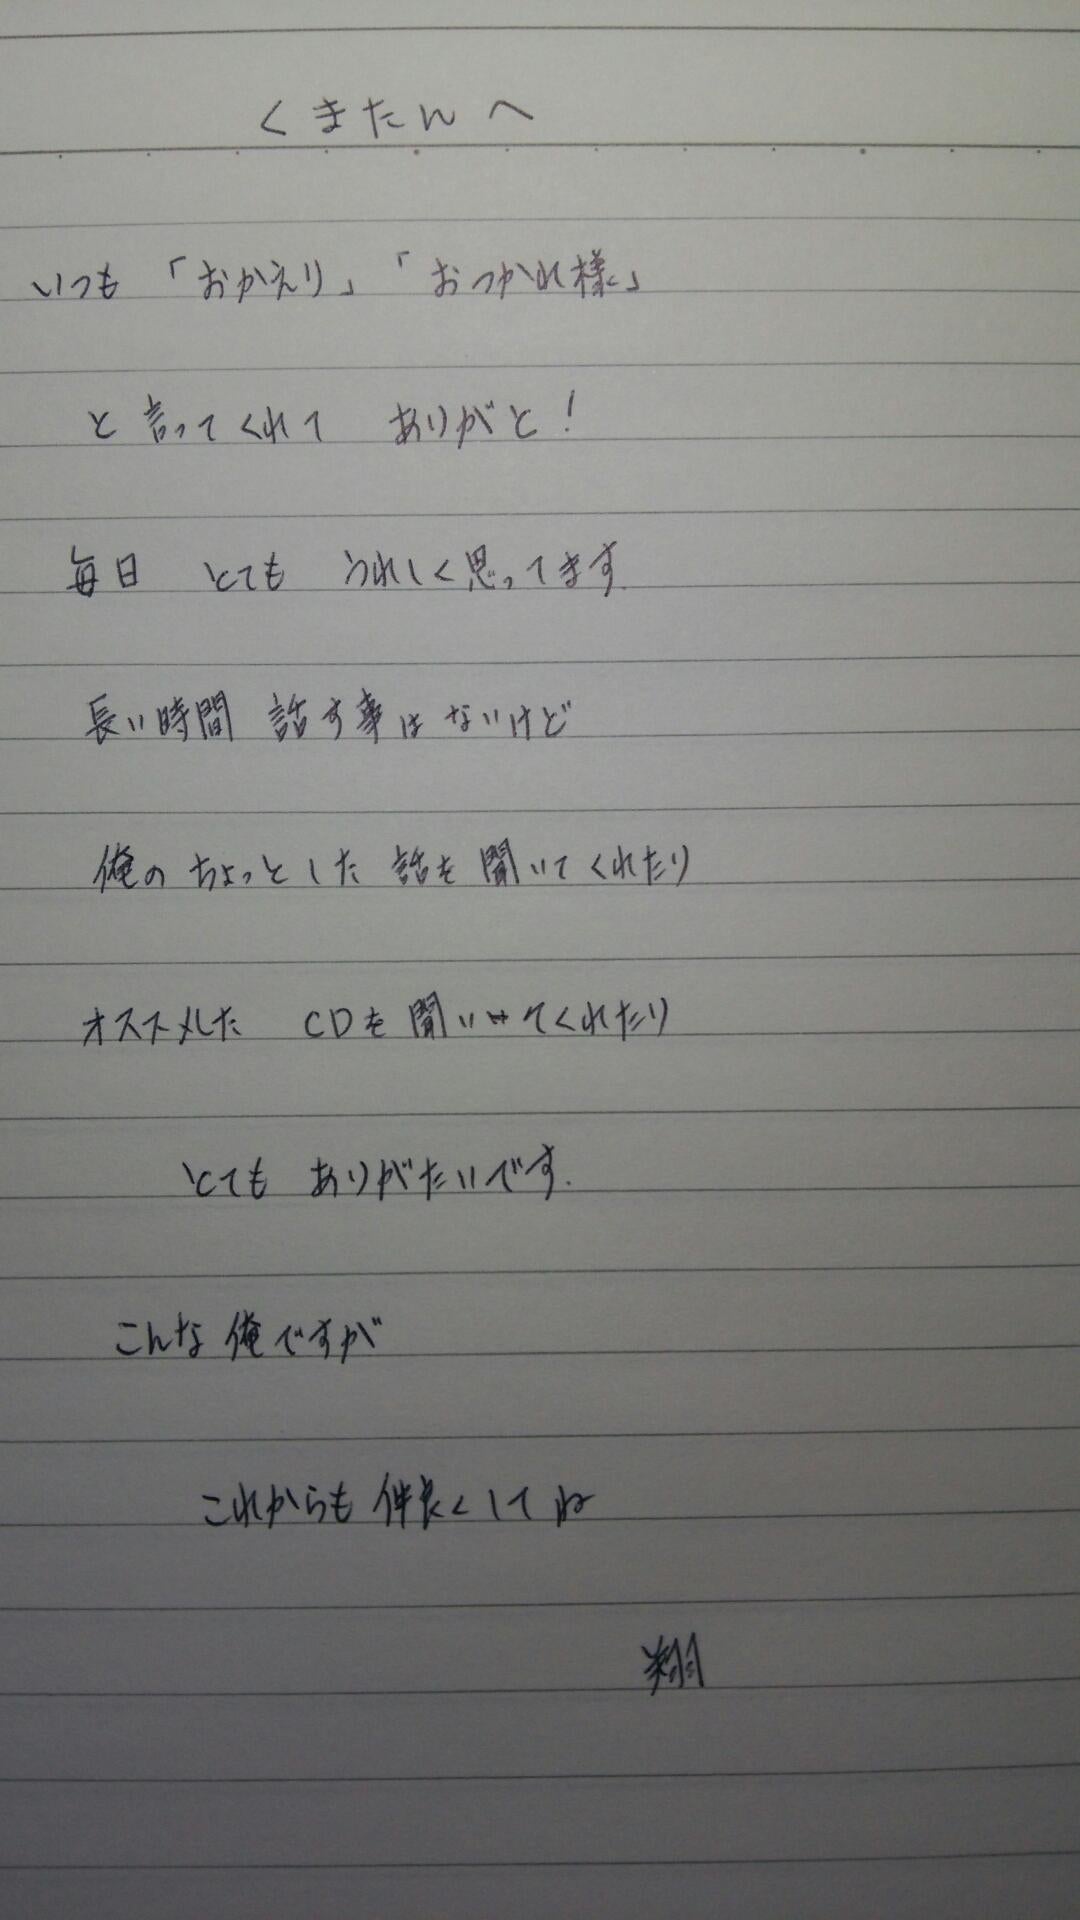 くまたんへ
いつも「おかえり」「おつかれ様」
と言ってくれて ありがと!
毎日 とても うれしく思ってます.
長い時間 話す事はないけど
俺のちょっとした 話を 聞いてくれたり
オススメした CDを聞いてくれたり
とても ありがたいです.
こんな俺ですが
これからも仲良くしてね
翔